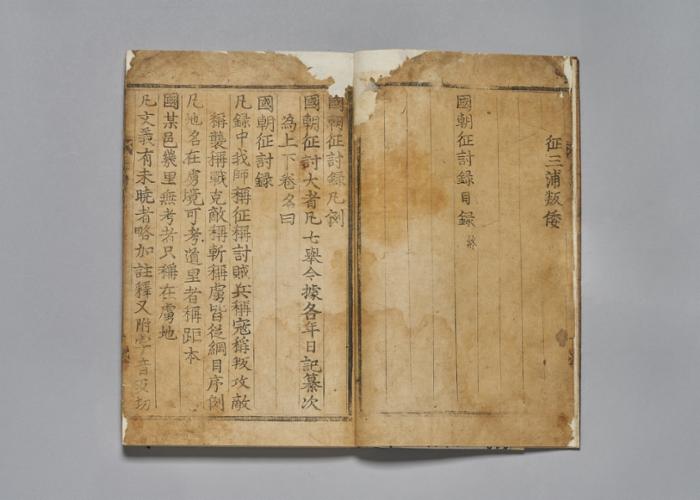 征三浦叛倭
國朝征討錄目錄 終
國朝征討錄凡例
國朝征討大者凡七舉今據各年日記纂次
為上下卷名曰
國朝征討錄
凡錄中我師稱征稱討賊兵稱寇稱叛攻敵
稱襲稱戰克敵稱斬稱虜皆從綱目序例
凡地名在虜境可考道里者稱距本
國某邑幾里無考者只稱在虜地
凡文義有未曉者略加註釋又附字音反切